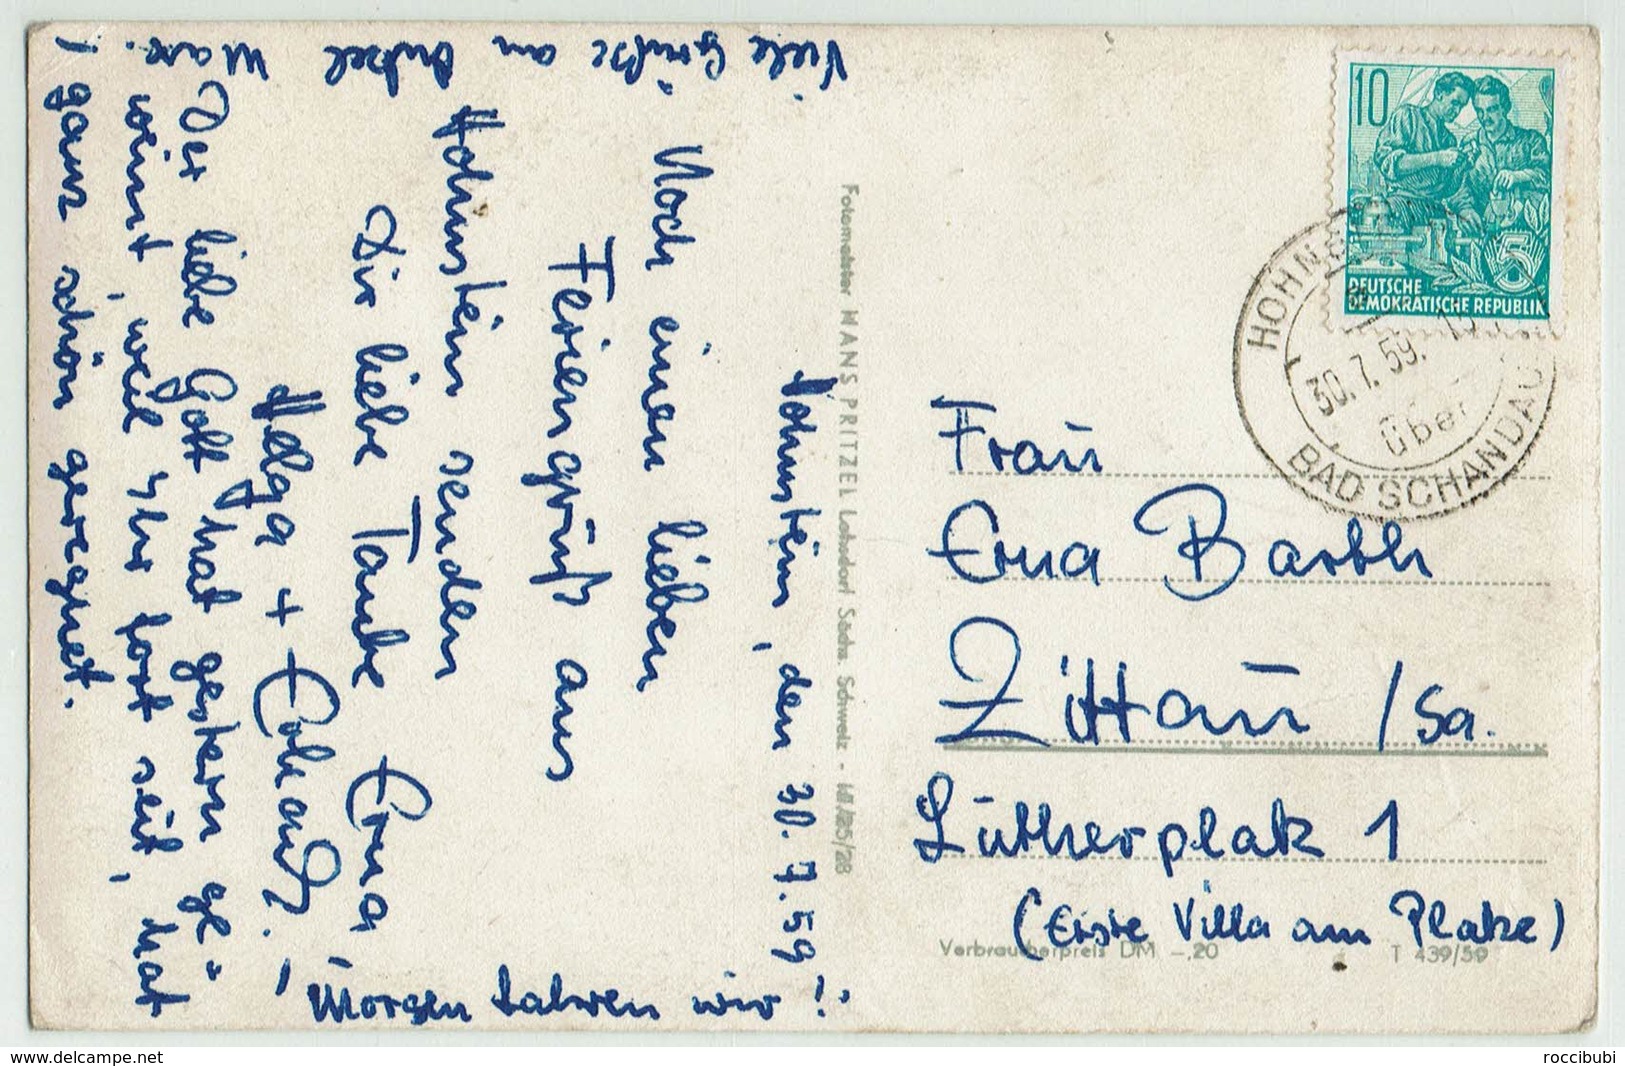 Hohnstein, den 30.7.59
Noch einen lieben
Feriengruß aus
Hohnstein senden
Dir liebe Tante Erna
Helga + Eckard.
Der liebe Gott hat gestern ge=
weint, weil Ihr fort seit, hat
ganz schön geregnet.
Viele Grüße an Onkel Max.
Morgen fahren wir!
Fotomeister HANS PRITZEL Lohsdorf Sächs. Schweiz - III/25/28
10
5
DEUTSCHE
DEMOKRATISCHE REPUBLIK
HOHNSTEIN
30.7.59.
über
BAD SCHANDAU
Frau
Erna Barth
Zittau /Sa.
Lutherplatz 1
(Erste Villa am Platze)
Verbraucherpreis DM -,20
T 439/59
delcampe.net
roccibubi